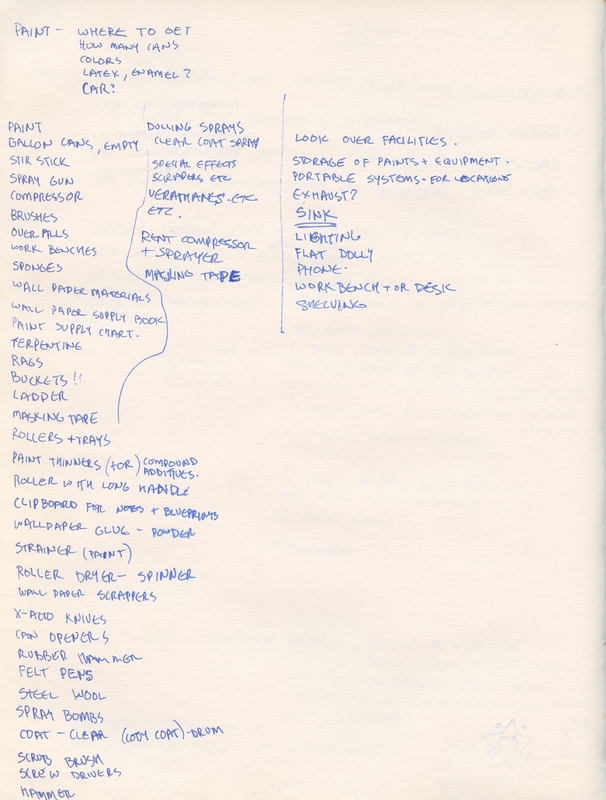 PAINT - WHERE TO GET
HOW MANY CANS
COLORS
LATEX, ENAMEL?
CAR?
PAINT
GALLON CANS, EMPTY
STIR STICK
SPRAY GUN
COMPRESSOR
BRUSHES
OVERALLS
WORK BENCHES
SPONGES
WALL PAPER MATERIALS
WALL PAPER SUPPLY BOOK
PAINT SUPPLY CHART.
TERPENTINE
RAGS
BUCKETS!!
LADDER
MASKING TAPE
ROLLERS + TRAYS
PAINT THINNERS (+OR) COMPOUND
ADDITIVES.
ROLLER WITH LONG HANDLE
CLIPBOARD FOR NOTES + BLUEPRINTS
WALLPAPER GLUE - POWDER
STRAINER (PAINT)
ROLLER DRYER - SPINNER
WALL PAPER SCRAPPERS
X-ACTO KNIVES
CAN OPENERS
RUBBER HAMMER
FELT PENS
STEEL WOOL
SPRAY BOMBS
COAT - CLEAR (COTY COAT) - DRUM
SCRUB BRUSH
SCREW DRIVERS
HAMMER
DULLING SPRAYS
CLEAR COAT SPRAY
SPECIAL EFFECTS
SCRAPERS ETC
VERATHANES - ETC
ETC.
RENT COMPRESSOR
+ SPRAYER
MASKING TAPE
LOOK OVER FACILITIES.
STORAGE OF PAINTS + EQUIPMENT.
PORTABLE SYSTEMS - FOR LOCATIONS
EXHAUST?
SINK
LIGHTING
FLAT DOLLY
PHONE.
WORK BENCH + OR DESK
SHELVING